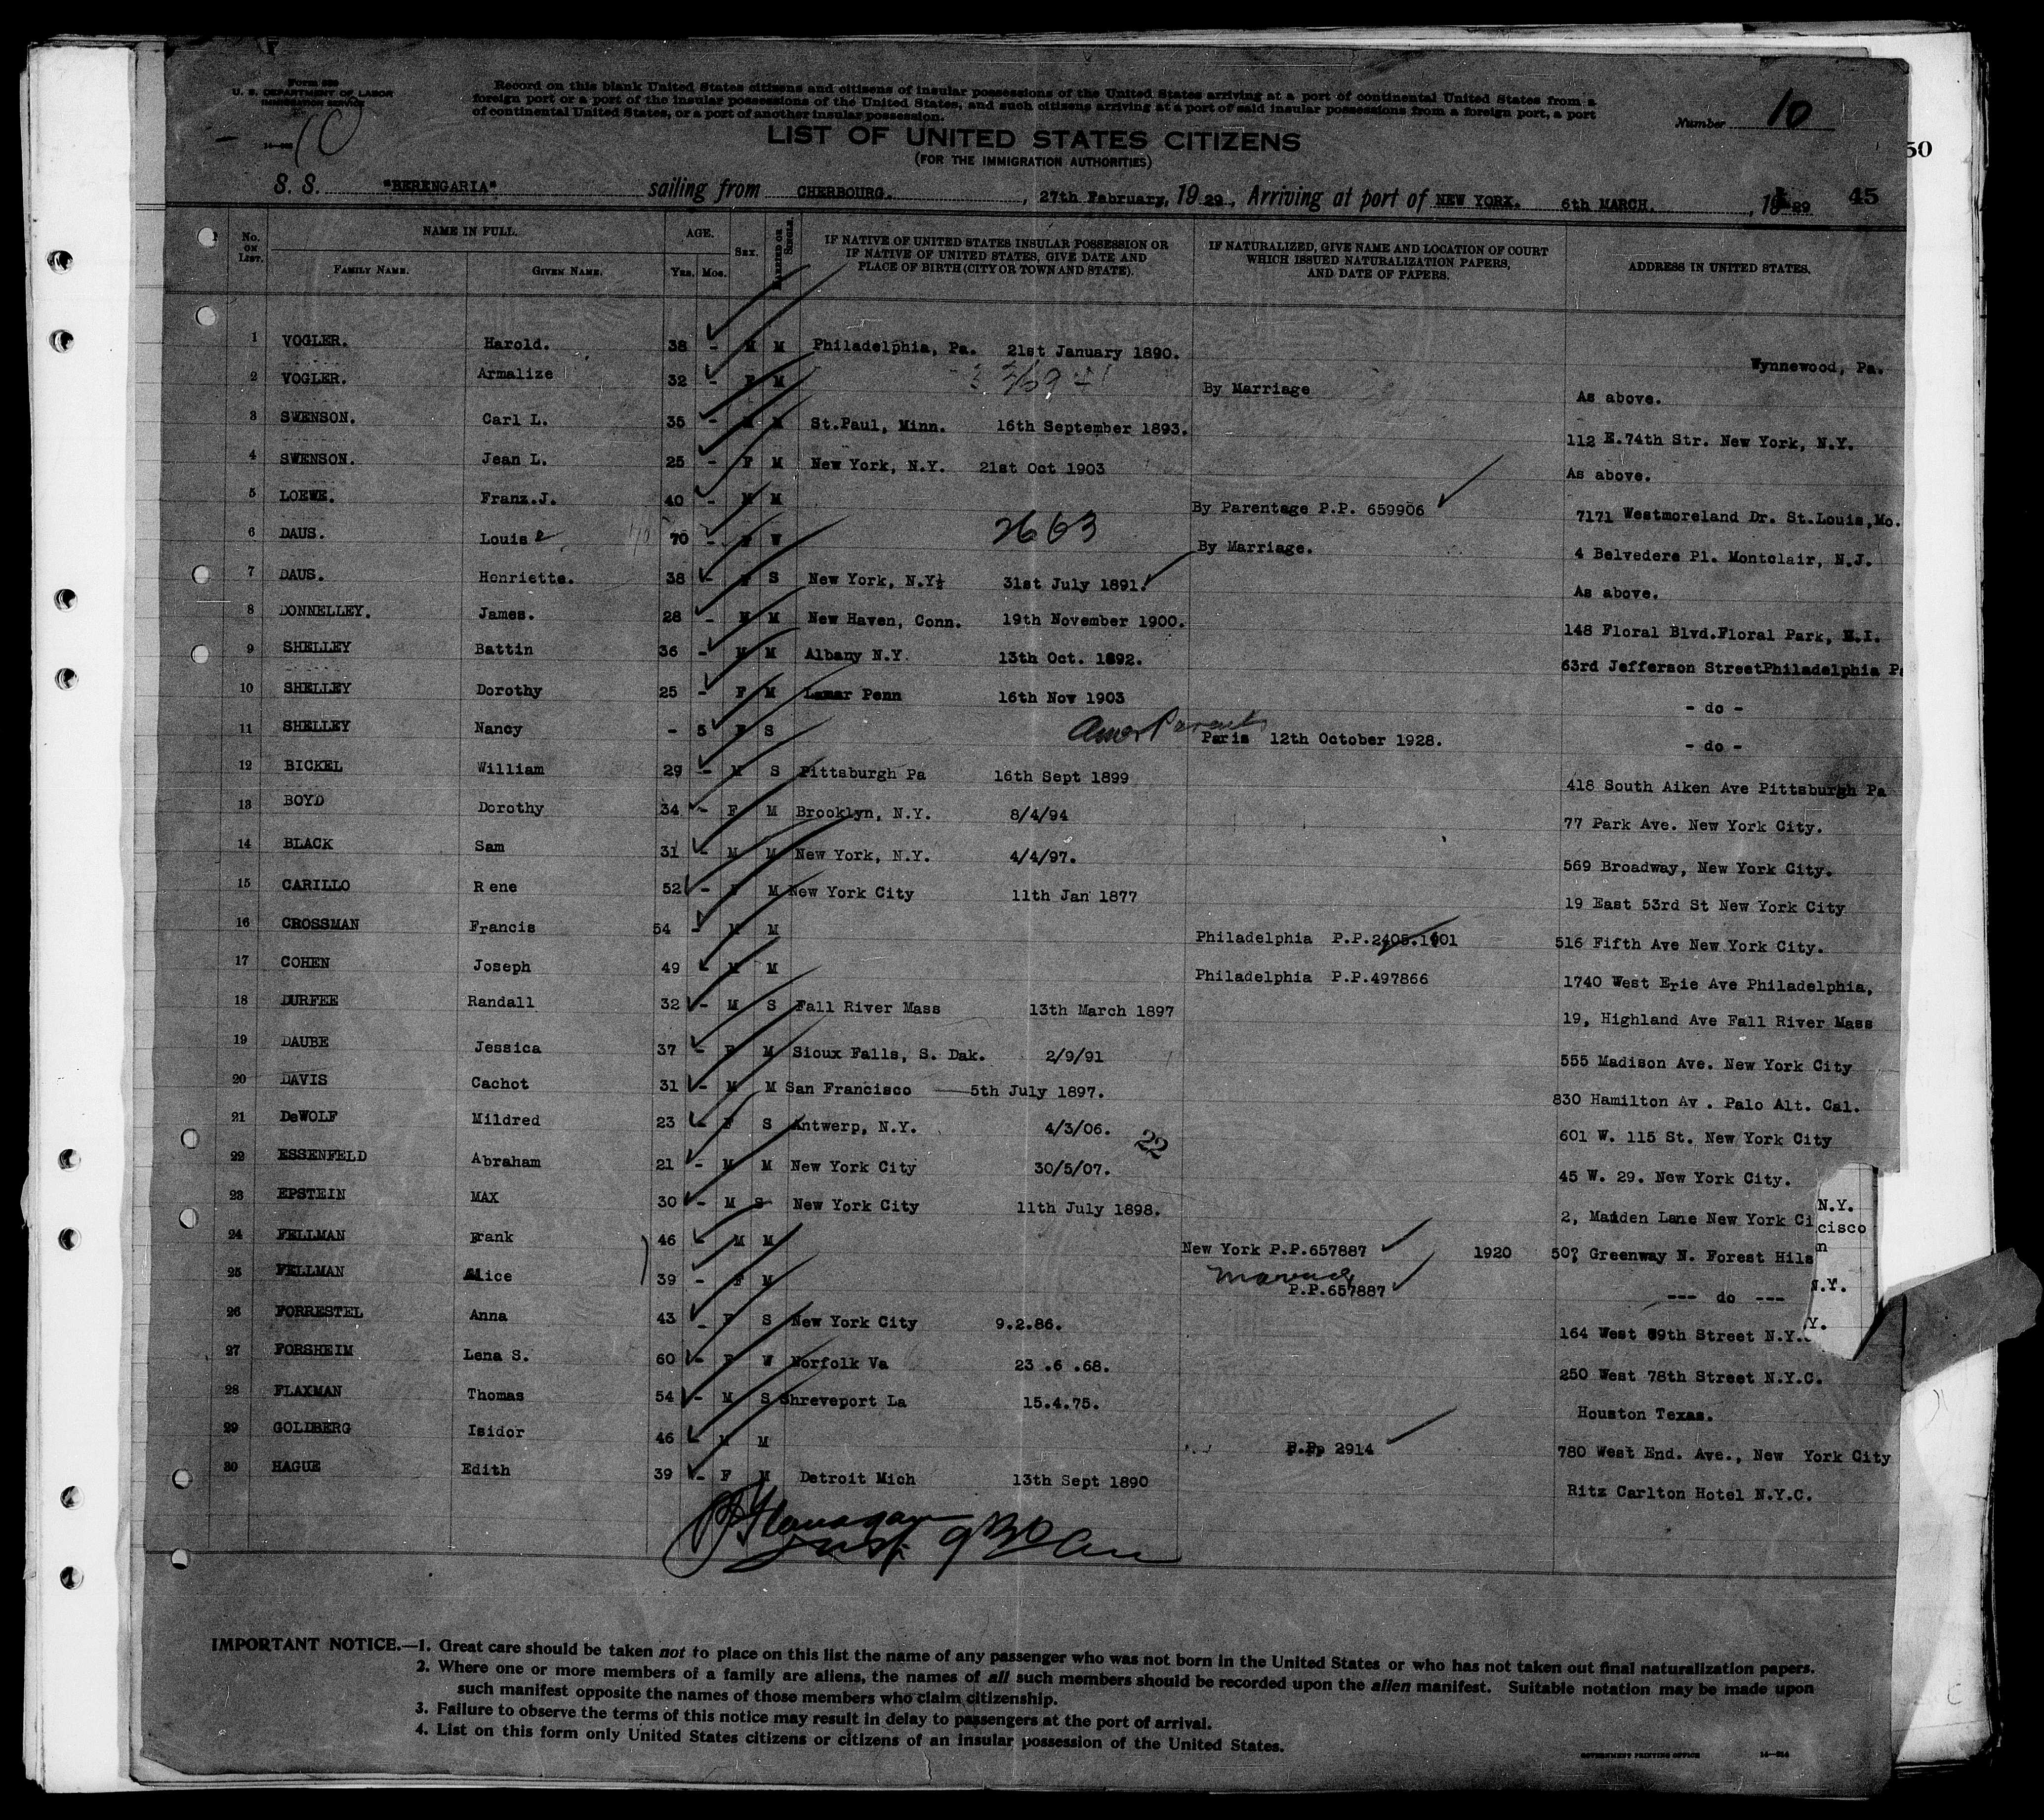 Form 630
U. S. DEPARTMENT OF LABOR
IMMIGRATION SERVICE
10
Record on this blank United States citizens and citizens of insular possessions of the United States arriving at a port of continental United States from a
foreign port or a port of the insular possessions of the United States, and such citizens arriving at a port of said insular possessions from a foreign port, a port
of continental United States, or a port of another insular possession.
Number 10
LIST OF UNITED STATES CITIZENS
(FOR THE IMMIGRATION AUTHORITIES)
50
S. S. "BERENGARIA" sailing from CHERBOURG. , 27th February, 19 29, Arriving at port of NEW YORK. 6th MARCH. , 19 29 45
No. ON LIST. NAME IN FULL. FAMILY NAME. GIVEN NAME. AGE. Yrs. Mos. SEX. MARRIED OR SINGLE. IF NATIVE OF UNITED STATES INSULAR POSSESSION OR IF NATIVE OF UNITED STATES, GIVE DATE AND PLACE OF BIRTH (CITY OR TOWN AND STATE). IF NATURALIZED, GIVE NAME AND LOCATION OF COURT WHICH ISSUED NATURALIZATION PAPERS, AND DATE OF PAPERS. ADDRESS IN UNITED STATES.
1 VOGLER. Harold. 38 - M M Philadelphia, Pa. 21st January 1890. Wynnewood, Pa.
2 VOGLER. Armalize 32 - F M By Marriage As above.
3 SWENSON. Carl L. 35 - M M St.Paul, Minn. 16th September 1893. 112 E.74th Str. New York, N.Y.
4 SWENSON. Jean L. 25 - F M New York, N.Y. 21st Oct 1903 As above.
5 LOEWE. Franz.J. 40 - M M By Parentage P.P. 659906 7171 Westmoreland Dr. St.Louis,Mo.
6 DAUS. Louise 70 - F W 2663 By Marriage. 4 Belvedere Pl. Montclair, N.J.
7 DAUS. Henriette. 38 - F S New York, N.Y. 31st July 1891. As above.
8 DONNELLEY. James. 28 - M M New Haven, Conn. 19th November 1900. 148 Floral Blvd.Floral Park, I.
9 SHELLEY Battin 36 - M M Albany N.Y. 13th Oct. 1892. 63rd Jefferson StreetPhiladelphia Pa
10 SHELLEY Dorothy 25 - F M Lamar Penn 16th Nov 1903 - do -
11 SHELLEY Nancy - 5 F S Amer Parents Paris 12th October 1928. - do -
12 BICKEL William 29 - M S Pittsburgh Pa 16th Sept 1899 418 South Aiken Ave Pittsburgh Pa
13 BOYD Dorothy 34 - F M Brooklyn, N.Y. 8/4/94 77 Park Ave. New York City.
14 BLACK Sam 31 - M M New York, N.Y. 4/4/97. 569 Broadway, New York City.
15 CARILLO Rene 52 - F M New York City 11th Jan 1877 19 East 53rd St New York City
16 CROSSMAN Francis 54 - M M Philadelphia P.P.2405.1901 516 Fifth Ave New York City.
17 COHEN Joseph 49 M M Philadelphia P.P.497866 1740 West Erie Ave Philadelphia,
18 DURFEE Randall 32 - M S Fall River Mass 13th March 1897 19, Highland Ave Fall River Mass
19 DAUBE Jessica 37 - F M Sioux Falls, S. Dak. 2/9/91 555 Madison Ave. New York City
20 DAVIS Cachot 31 - M M San Francisco 5th July 1897. 830 Hamilton Av . Palo Alt. Cal.
21 DeWOLF Mildred 23 - F S Antwerp, N.Y. 4/3/06. 22 601 W. 115 St. New York City
22 ESSENFELD Abraham 21 - M M New York City 30/5/07. 45 W. 29. New York City.
23 EPSTEIN MAX 30 - M S New York City 11th July 1898. 2, Maiden Lane New York Ci N.Y.
cisco
24 FELLMAN Frank 46 - M M New York P.P.657887 1920 507 Greenway N. Forest Hils n
25 FELLMAN Alice 39 - F M Married P.P.657887 --- do --- N.Y.
26 FORRESTEL Anna 43 - F S New York City 9.2.86. 164 West 89th Street N.Y. Y.
27 FORSHEIM Lena S. 60 - F W Norfolk Va 23 .6 .68. 250 West 78th Street N.Y.C.
28 FLAXMAN Thomas 54 - M S Shreveport La 15.4.75. Houston Texas.
29 GOLDBERG Isidor 46 - M M P.P. 2914 780 West End. Ave., New York City
30 HAGUE Edith 39 - F M Detroit Mich 13th Sept 1890 Ritz Carlton Hotel N.Y.C.
Flanagan
Insp.
IMPORTANT NOTICE.—1. Great care should be taken not to place on this list the name of any passenger who was not born in the United States or who has not taken out final naturalization papers.
2. Where one or more members of a family are aliens, the names of all such members should be recorded upon the alien manifest. Suitable notation may be made upon
such manifest opposite the names of those members who claim citizenship.
3. Failure to observe the terms of this notice may result in delay to passengers at the port of arrival.
4. List on this form only United States citizens or citizens of an insular possession of the United States.
GOVERNMENT PRINTING OFFICE